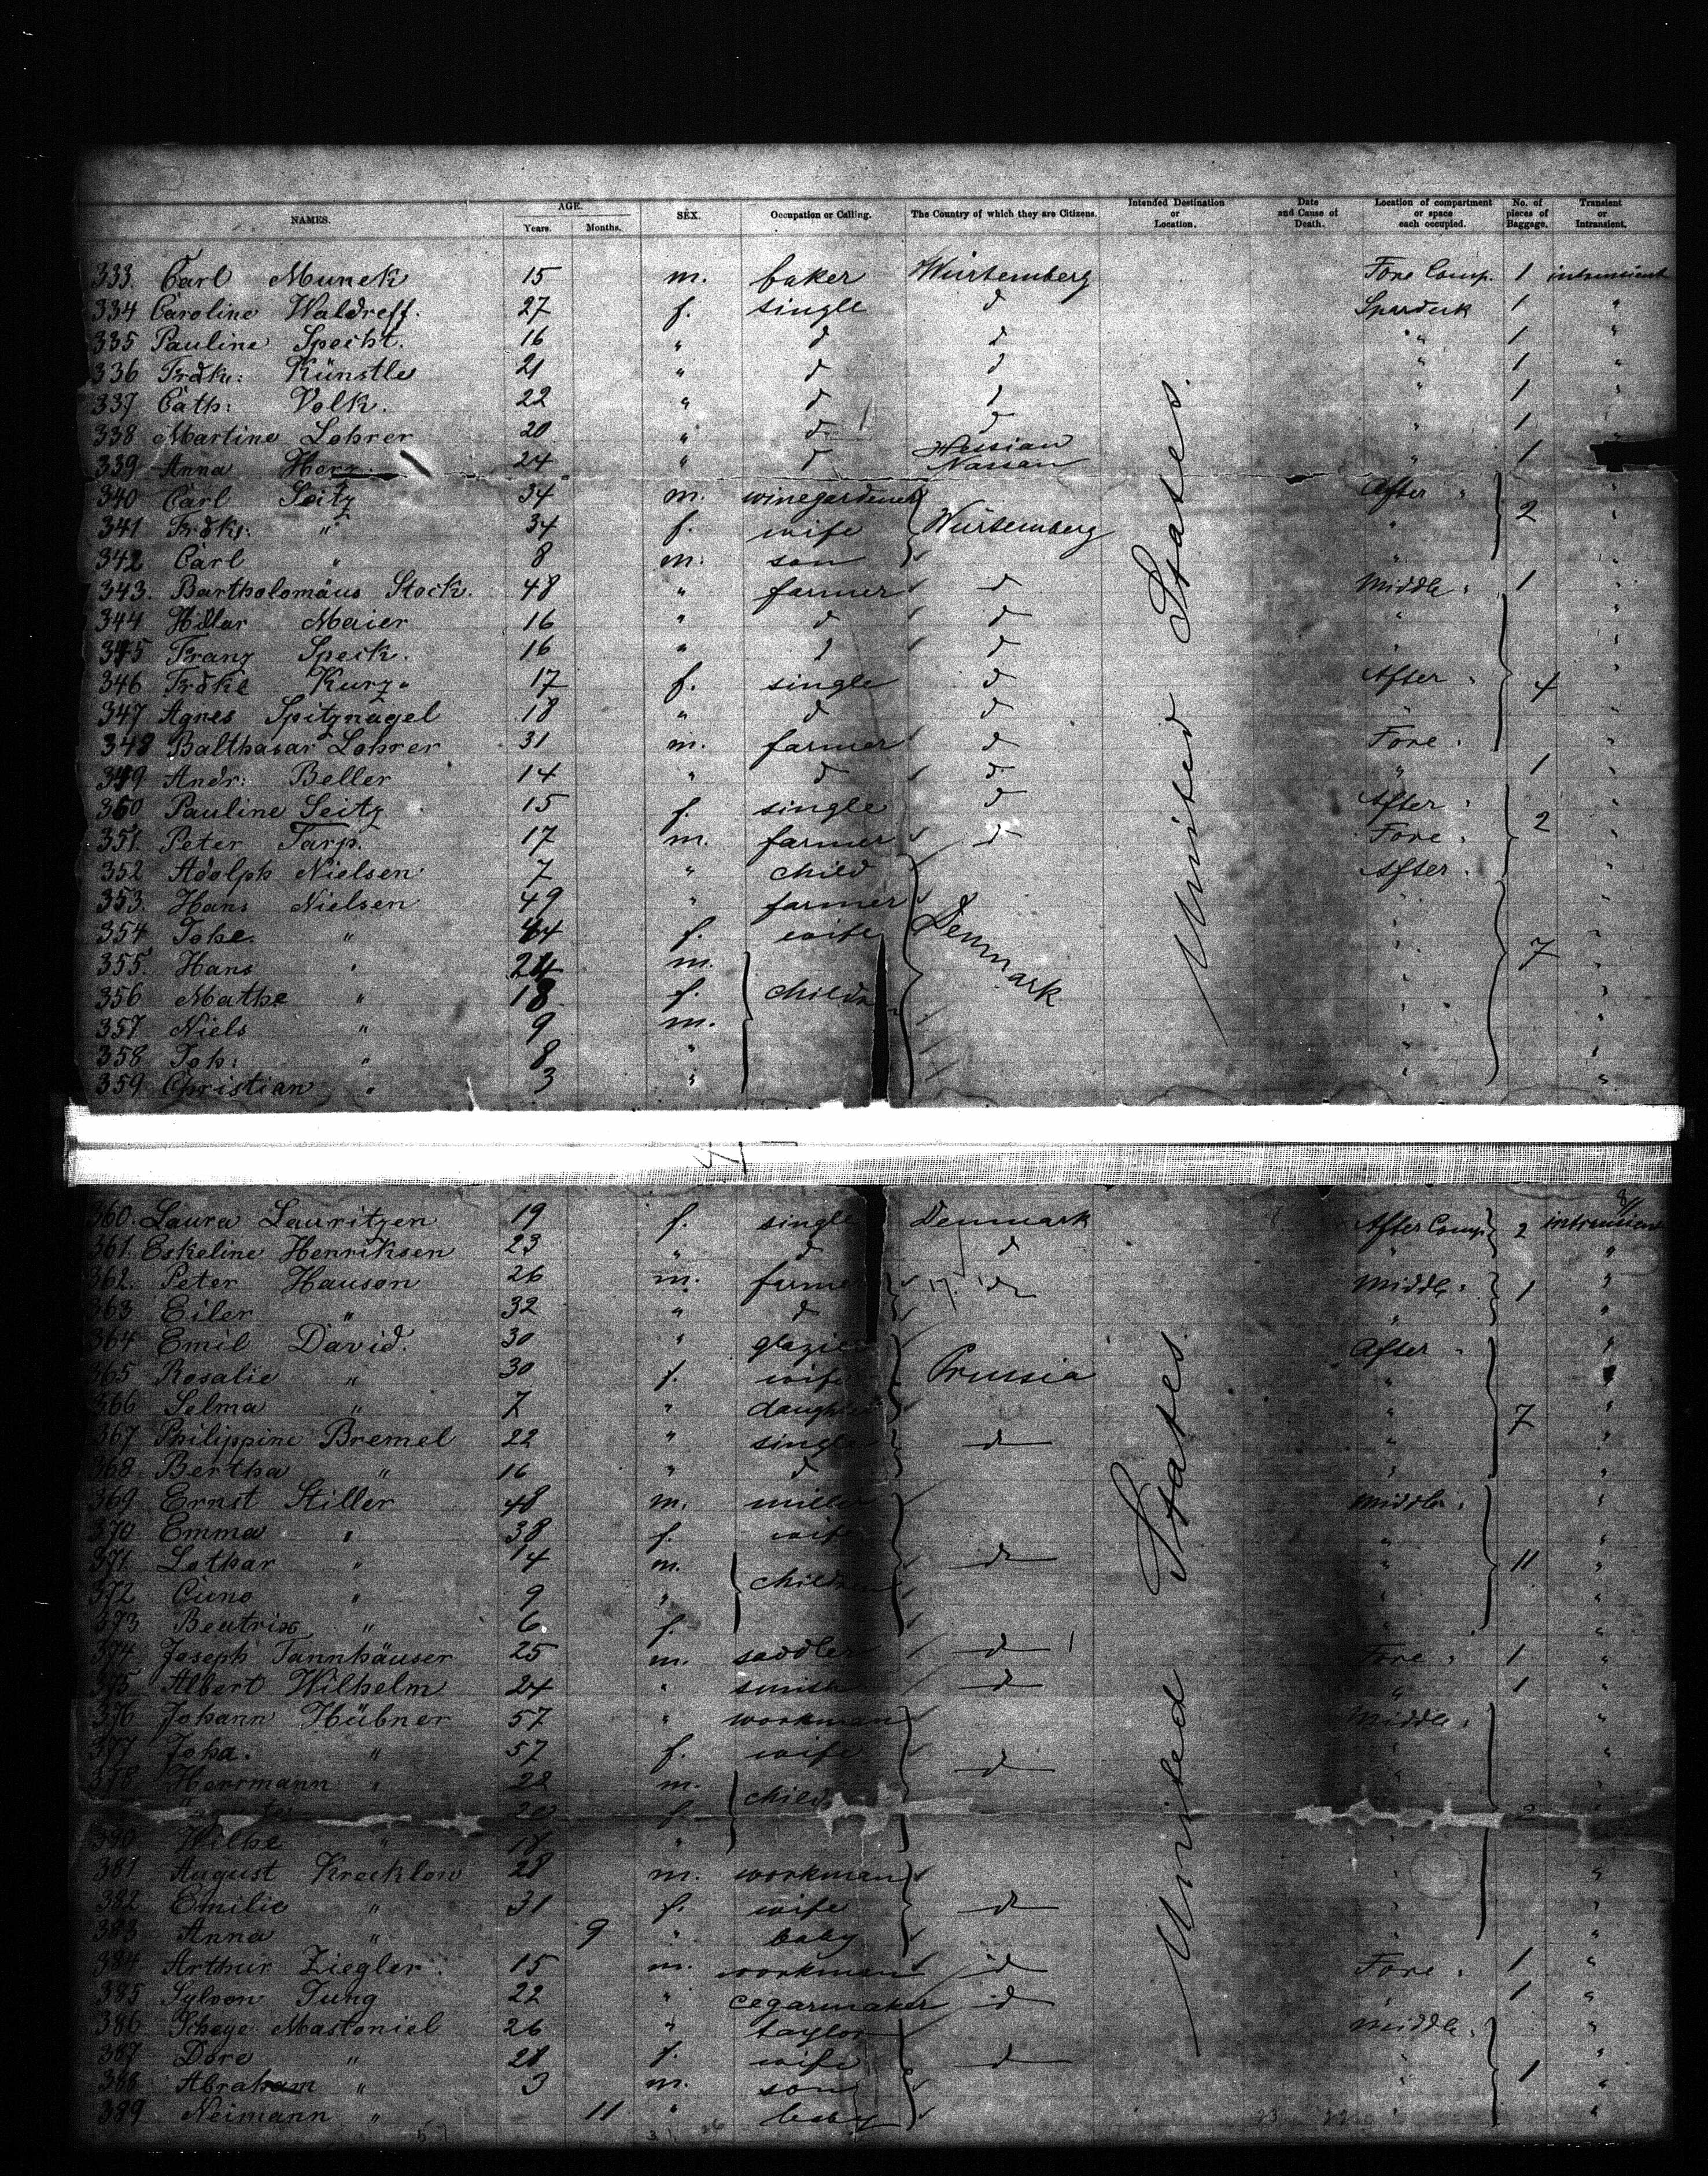 NAMES. AGE. Years. Months. SEX. Occupation or Calling. The Country of which they are Citizens. Intended Destination or Location. Date and Cause of Death. Location of compartment or space each occupied. No. of pieces of Baggage. Transient or Intransient.
333. Carl Munek 15 m. baker Würtemberg Fore Comp. 1 intransient
334 Caroline Waldreff. 27 f. single d Spardeck 1 "
335 Pauline Specht. 16 " d d " 1 "
336 Frdke: Künstle 21 " d d " 1 "
337 Cath: Volk. 22 " d d " 1 "
338 Martine Lohrer 20 " d d " 1 "
339 Anna Herz 24 " d Hessian Nassau " 1
340 Carl Seitz 34 m. winegardener Würtemberg After " 2 "
341 Frdke: " 34 f. wife " "
342 Carl " 8 m. son " "
343. Bartholomäus Stock. 48 " farmer d Middle " 1 "
344 Hillar Maier 16 " d d " "
345 Franz Speck. 16 " d d " "
346 Frdke Kurz 17 f. single d After " 4 "
347 Agnes Spitznagel 18 " d d " "
348 Balthasar Lohrer 31 m. farmer d Fore " "
349 Andr: Beller 14 " d d " 1 "
360 Pauline Seitz 15 f. single d After " 2 "
351. Peter Tarp. 17 m. farmer d Fore " "
352 Adolph Nielsen 7 " child Denmark After " "
353. Hans Nielsen 49 " farmer " "
354 Johe. " 44 f. wife " 7 "
355. Hans " 24 m. children " "
356 Mathe " 18 f. " "
357 Niels " 9 m. " "
358 Joh: " 8 " " "
359 Christian " 3 " " "
United States.
360. Laura Lauritzen 19 f. single Denmark After Comp. 2 intransient
361. Eskeline Henriksen 23 " d d " "
362. Peter Hauson 26 m. farmer d Middle " 1 "
363 Eiler " 32 " d " "
364 Emil David. 30 " glazier Prussia After " "
365 Rosalie " 30 f. wife " "
366 Selma " 7 " daughter " 7 "
367 Philippine Bremel 22 " single d " "
368 Bertha " 16 " d " "
369 Ernst Stiller 48 m. miller Middle " "
370 Emma " 38 f. wife " "
371 Lothar " 14 m. children d " 11 "
372 Cuno " 9 " " "
373 Beatrix " 6 f. " "
374 Joseph Tannhäuser 25 m. saddler d Fore " 1 "
375 Albert Wilhelm 24 " smith d " 1 "
376 Johann Hübner 57 " workman Middle " "
377 Joha. " 57 f. wife d " "
378 Herrmann " 22 m. child " "
20 f.
380 Wilhe " 18 "
381 August Krecklow 28 m. workman " "
382 Emilie " 31 f. wife d " "
383 Anna " 9 " baby " "
384 Arthur Ziegler 15 m. workman d Fore " 1 "
385 Sylvon Jung 22 " cegarmaker d " 1 "
386 Scheye Mastoniel 26 " taylor Middle " "
387 Dore " 21 f. wife d " "
388 Abraham " 3 m. son " 1 "
389 Neimann " 11 " baby " "
United States.